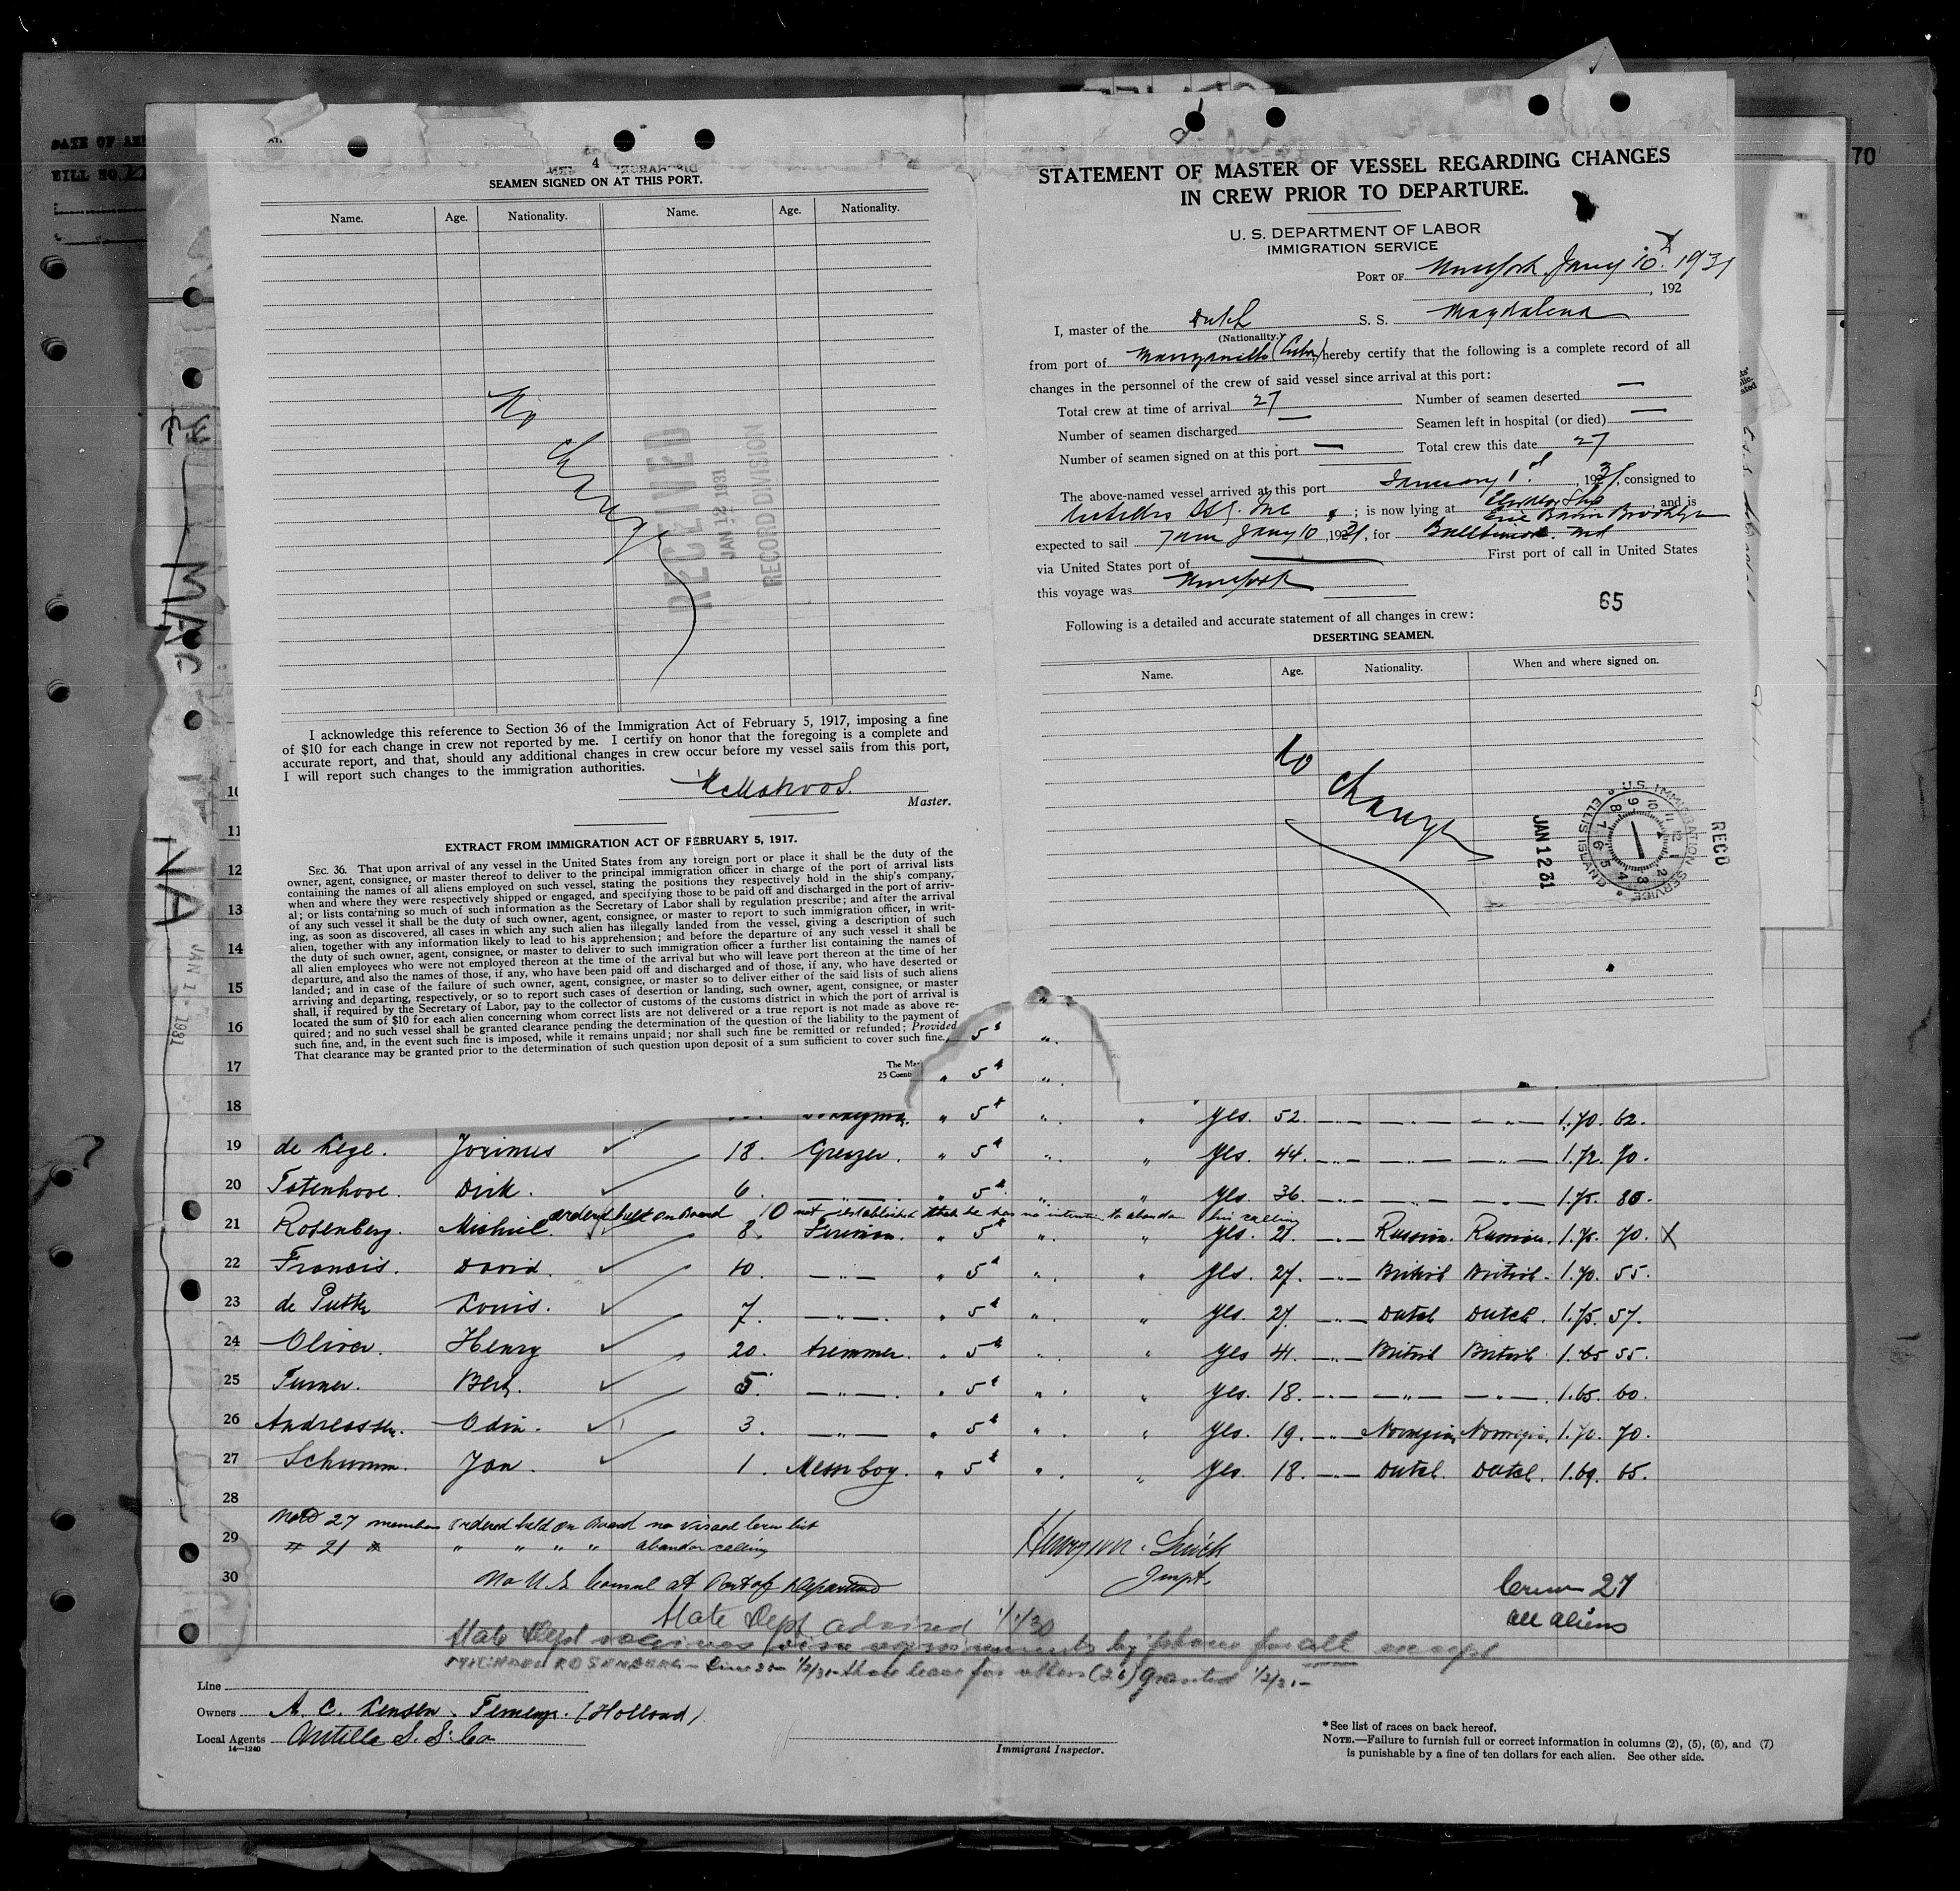 DATE OF
BILL NO.
70
4
SEAMEN SIGNED ON AT THIS PORT.
Name. Age. Nationality. Name. Age. Nationality.
No
change
RECEIVED
JAN 12 1931
RECORD DIVISION
I acknowledge this reference to Section 36 of the Immigration Act of February 5, 1917, imposing a fine
of $10 for each change in crew not reported by me. I certify on honor that the foregoing is a complete and
accurate report, and that, should any additional changes in crew occur before my vessel sails from this port,
I will report such changes to the immigration authorities.
Master.
EXTRACT FROM IMMIGRATION ACT OF FEBRUARY 5, 1917.
SEC. 36. That upon arrival of any vessel in the United States from any foreign port or place it shall be the duty of the
owner, agent, consignee, or master thereof to deliver to the principal immigration officer in charge of the port of arrival lists
containing the names of all aliens employed on such vessel, stating the positions they respectively hold in the ship's company,
when and where they were respectively shipped or engaged, and specifying those to be paid off and discharged in the port of arriv-
al; or lists containing so much of such information as the Secretary of Labor shall by regulation prescribe; and after the arrival
of any such vessel it shall be the duty of such owner, agent, consignee, or master to report to such immigration officer, in writ-
ing, as soon as discovered, all cases in which any such alien has illegally landed from the vessel, giving a description of such
alien, together with any information likely to lead to his apprehension; and before the departure of any such vessel it shall be
the duty of such owner, agent, consignee, or master to deliver to such immigration officer a further list containing the names of
all alien employees who were not employed thereon at the time of the arrival but who will leave port thereon at the time of her
departure, and also the names of those, if any, who have been paid off and discharged and of those, if any, who have deserted or
landed; and in case of the failure of such owner, agent, consignee, or master so to deliver either of the said lists of such aliens
arriving and departing, respectively, or so to report such cases of desertion or landing, such owner, agent, consignee, or master
shall, if required by the Secretary of Labor, pay to the collector of customs of the customs district in which the port of arrival is
located the sum of $10 for each alien concerning whom correct lists are not delivered or a true report is not made as above re-
quired; and no such vessel shall be granted clearance pending the determination of the question of the liability to the payment of
such fine, and, in the event such fine is imposed, while it remains unpaid; nor shall such fine be remitted or refunded; Provided
That clearance may be granted prior to the determination of such question upon deposit of a sum sufficient to cover such fine.
STATEMENT OF MASTER OF VESSEL REGARDING CHANGES
IN CREW PRIOR TO DEPARTURE.
U. S. DEPARTMENT OF LABOR
IMMIGRATION SERVICE
PORT OF New York Jany 10. 1931
, 192
I, master of the Dutch S. S. Magdalena
(Nationality.)
from port of Manzanillo (Cuba) hereby certify that the following is a complete record of all
changes in the personnel of the crew of said vessel since arrival at this port:
Total crew at time of arrival 27 Number of seamen deserted —
Number of seamen discharged — Seamen left in hospital (or died) —
Number of seamen signed on at this port — Total crew this date 27
The above-named vessel arrived at this port January 1st, 1931, consigned to
Inc ; is now lying at Erie Basin Brooklyn, and is
expected to sail 7 am Jany 10, 1931, for Baltimore. Md
via United States port of — First port of call in United States
this voyage was New York
65
Following is a detailed and accurate statement of all changes in crew:
DESERTING SEAMEN.
Name. Age. Nationality. When and where signed on.
No
change
U.S. IMMIGRATION SERVICE ELLIS ISLAND
JAN 12 31
RECD
MAG
NA
JAN 1 - 1931
10
11
12
13
14
15
16 5t ".
17 " 5t ".
18 " 5t " " Yes. 52. 1.70. 62.
19 de Lege. Jorinus 18. Greaser. " 5t " " Yes. 44. 1.72. 70.
20 Totenhove. Dirk. 6. —"— " 5t " " Yes. 36. 1.75. 80.
ordered held on Board 10 not established that he has no intention to abandon his calling
21 Rosenberg. Michiel. 8. Fireman. " 5t " " Yes. 21. Russian. Russian. 1.75. 70. X
22 Francis. David. 10. —"— " 5t " " Yes. 27. British British. 1.70. 55.
23 de Putter Louis. 7. —"— " 5t " " Yes. 27. Dutch Dutch. 1.75. 57.
24 Oliver. Henry 20. trimmer. " 5t " " Yes 41. British British. 1.65 55.
25 Turner. Bert. 5. —"— " 5t " " Yes. 18. —"— —"— 1.65. 60.
26 Andreassen. Odin. 3. —"— " 5t " " Yes. 19. Norwegian Norwegian. 1.70. 70.
27 Schumm. Jan. 1. Messboy. " 5t " " Yes. 18. Dutch. Dutch. 1.69. 65.
28
27 members ordered held on Board no visaed Crew list
29 # 21 " " " " abandon calling
30 No U.S. Consul at Port of Departure
Inspt.
Crew 27
all aliens
State Dept advised 1/1/30
State Dept visa requirements by phone for all except
MICHAEL ROSENBERG - Line 21 1/2/31 - shore leave for others (26) granted 1/2/31 -
Line
Owners A. C. Lensen. Terneuzen. (Holland)
Local Agents Antilla S. S. Co
14—1240
Immigrant Inspector.
*See list of races on back hereof.
NOTE.—Failure to furnish full or correct information in columns (2), (5), (6), and (7)
is punishable by a fine of ten dollars for each alien. See other side.